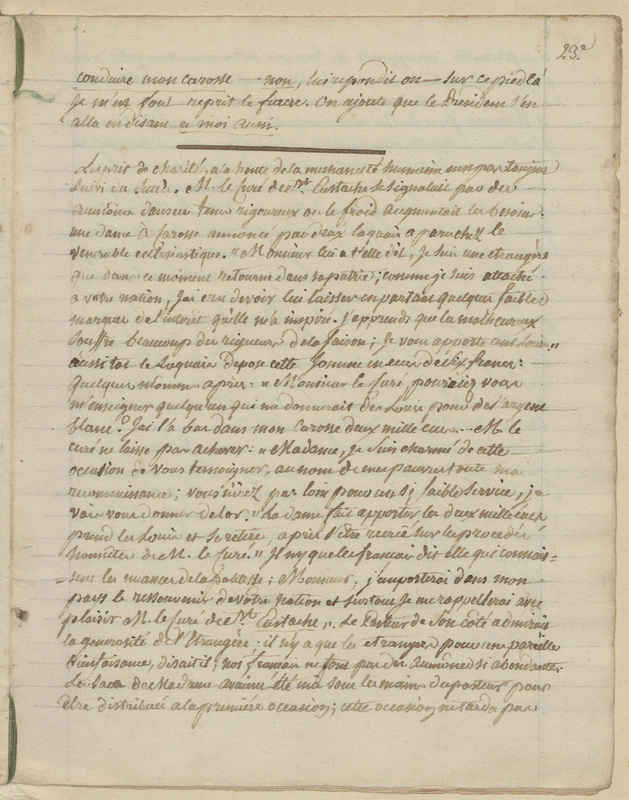 23.e
conduire mon carosse — non, lui repondit on — sur ce pied là
je m'en fout reprit le fiacre. On ajoute que le President s'en
alla en disant et moi aussi.
L'esprit de charité, a la honte de la mechanceté humaine n'est pas toujours
suivi du succès. M. le Curé de St. Eustache se signalait par des
aumones dans ces tems rigoureux ou le froid augmentait les besoins.
une dame à carosse annoncé par deux laquais a paru chez le
venerable eclesiastique. "Monsieur lui a t'elle dit, je suis une etrangère
qui dans ce moment retourne dans sa patrie; comme je suis attaché
a votre nation, j'ai cru devoir lui laisser en partant quelques faibles
marques de l'interet qu'elle m'a inspiré. j'apprends que les malheureux
souffre beaucoup des rigueurs de la saison; je vous apporte cent Louis"
aussitot le Laquais depose cette somme en ecus de six francs:
quelques momens après: "Monsieur le Curé, pouriez vous
m'enseigner quelqu'un qui me donnerait des Louis pour de l'argent
blanc? J'ai là bas dans mon carosse deux mille ecus... M. le
curé ne laisse pas achever: "Madame, je suis charmé de cette
occasion de vous temoigner, au nom de mes pauvres toute ma
reconnaissance; vous n'irez pas loin pour un si faible service, je
vais vous donner de l'or." La dame fait apporter les deux mille ecus
prend les Louis et se retire, après s'être recriée sur le procedé
honnête de M. le Curé. "Il n'y a que les francais dit elle qui connais=
=sent les nuances de la politesse; Monsieur, j'emporterai dans mon
pays le ressouvenir de votre nation et surtout je me rappellerai avec
plaisir M. le Curé de St. Eustache". Le Pasteur de son côté admirait
la generosité de l'Etrangère: il n'y a que les etrangers pour une pareille
bienfaisance, disait il, nos francais ne font pas des aumones si abondantes.
Les sacs de Madame avaient été mis sous les mains du pasteur pour
être distribués a la première occasion; cette occasion ne tarda pas